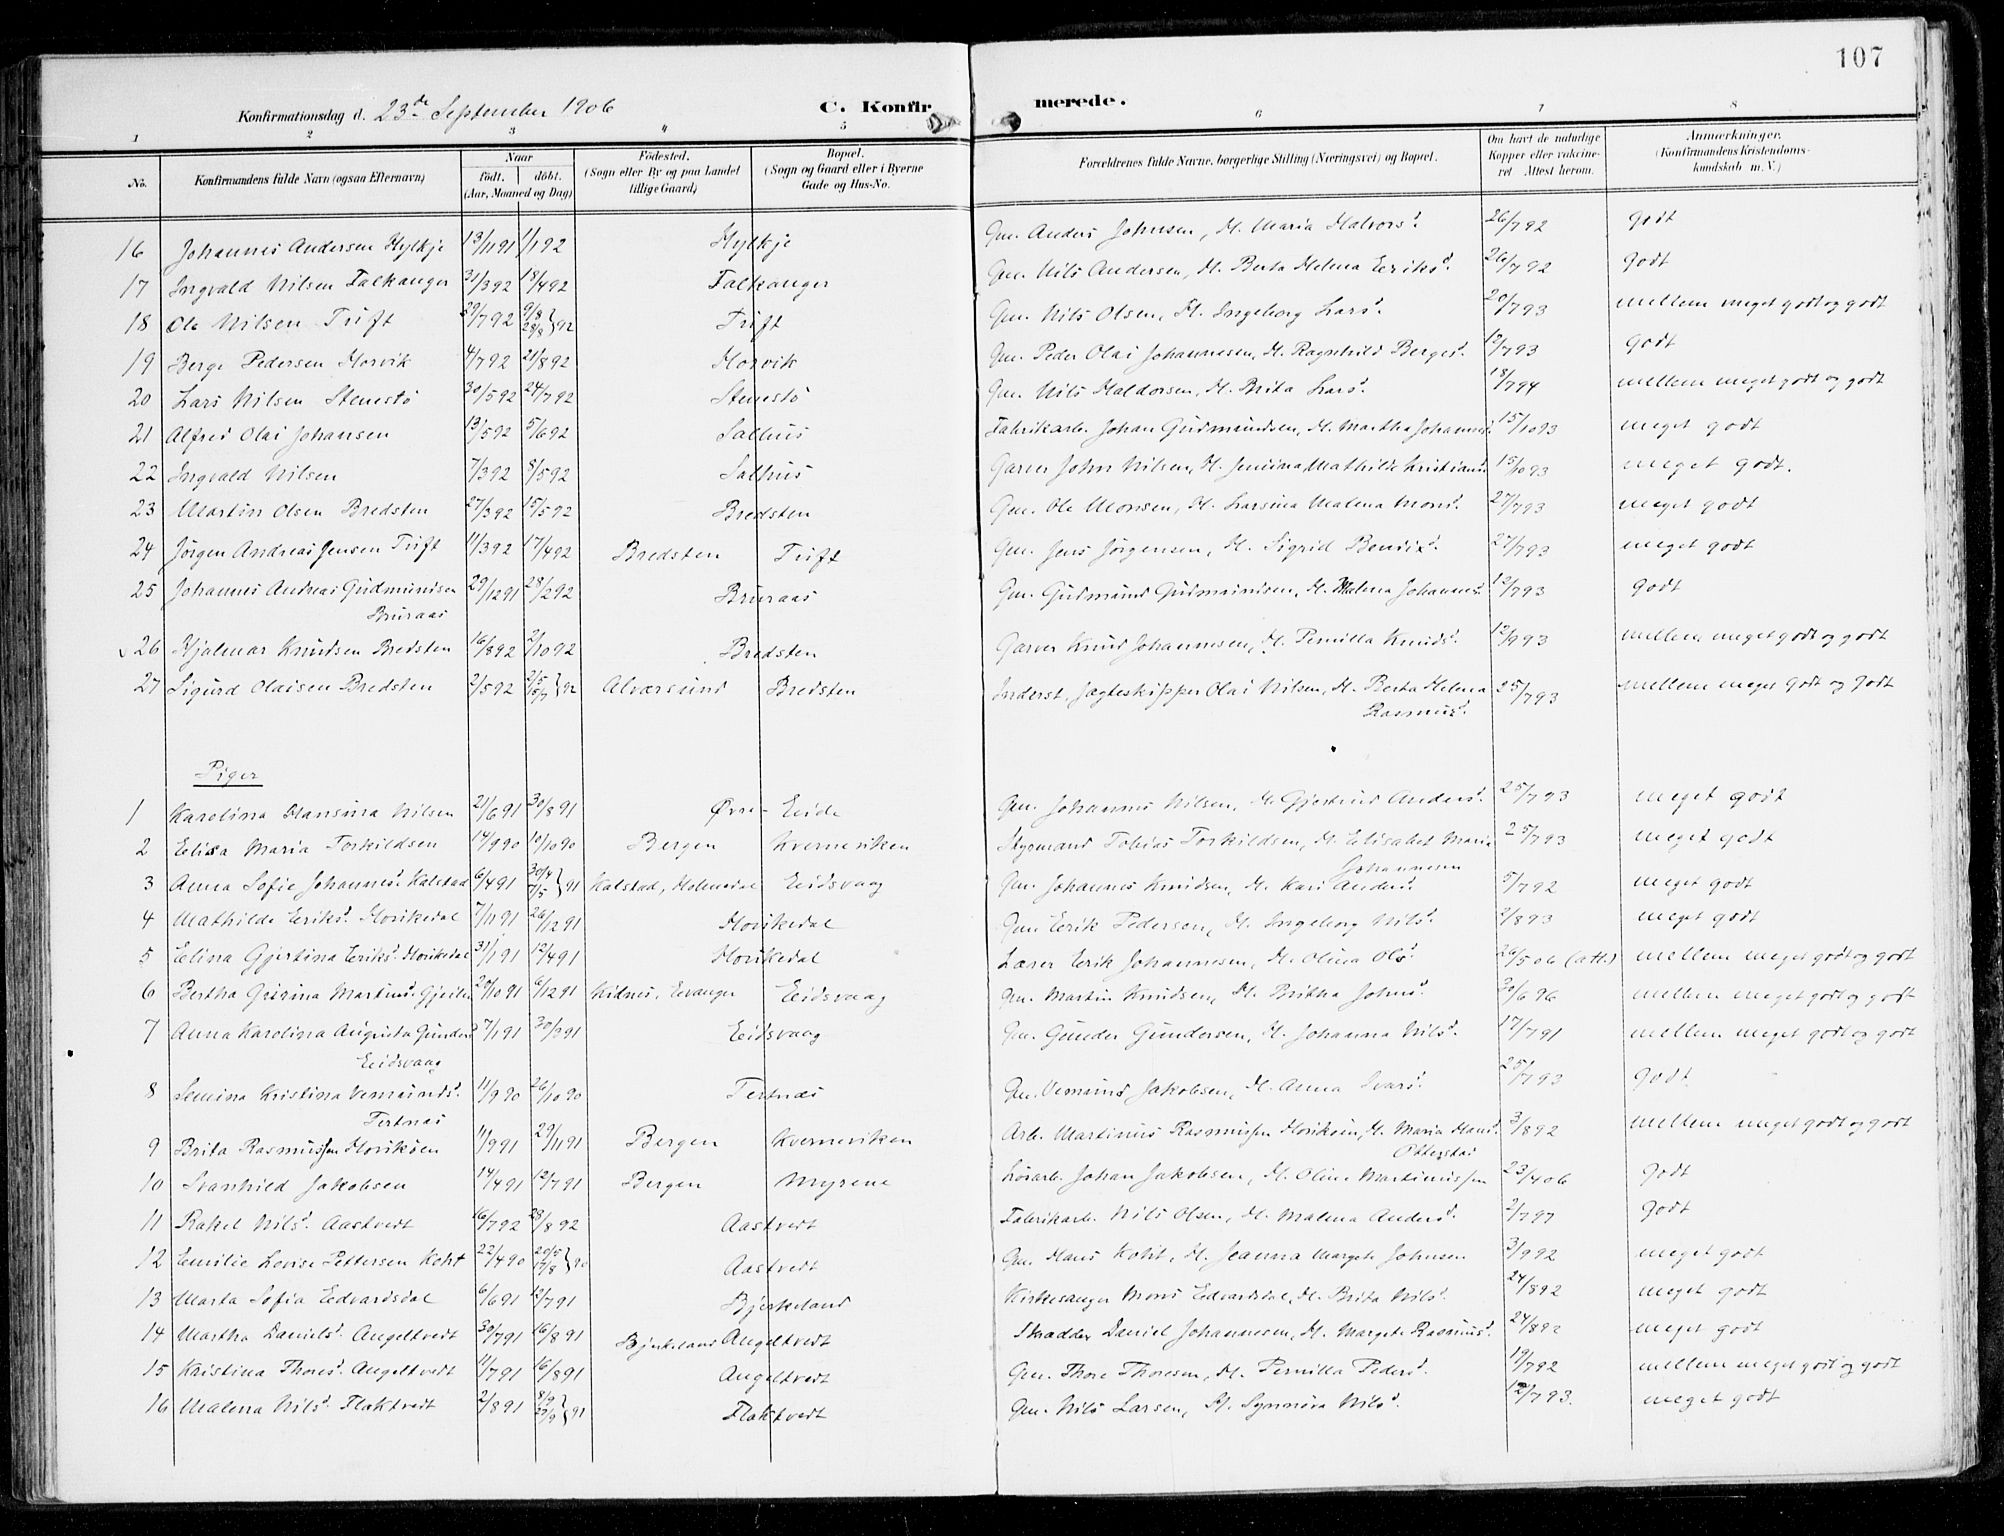 107
Konfirmationsdag d. 23de September 1906 C. Konfirmerede.
1 2 3 4 5 6 7 8
No. Konfirmandens fulde Navn (ogsaa Efternavn) Naar födt. döbt. (Aar, Maaned og Dag) Födested. (Sogn eller By og paa Landet tillige Gaard) Bopæl. (Sogn og Gaard eller i Byerne Gade og Hus-No. Forældrenes fulde Navne, borgerlige Stilling (Næringsvei) og Bopæl. Om havt de naturlige Kopper eller vakcineret Attest herom. Anmærkninger. (Konfirmandens Kristendomskundskab m. V.)
16 Johannes Andersen Hylkje 13/11 91 1/1 92 Hylkje Gm. Anders Johnsen, H. Maria Halvorsd. 26/7 92 godt
17 Ingvald Nilsen Falkanger 31/3 92 18/4 92 Falkanger Gm. Nils Andersen, H. Berta Helena Eriksd. 26/7 92 godt
18 Ole Nilsen Tuft 29/7 92 9/8 28/8 } 92 Tuft Gm. Nils Olsen, H. Ingeborg Larsd. 20/7 93 mellem meget godt og godt
19 Berge Pedersen Morvik 4/7 92 21/8 92 Morvik Gm. Peder Olai Johannesen, H. Ragnhild Bergesd. 12/7 93 godt
20 Lars Nilsen Stenestö 30/5 92 24/7 92 Stenestö Gm. Nils Haldorsen, H. Brita Larsd. 18/7 94 mellem meget godt og godt
21 Alfred Olai Johansen 13/5 92 5/6 92 Salhus Fabrikarb. Johan Gudmundsen, H. Martha Johannesd. 15/10 93 meget godt
22 Ingvald Nilsen 7/3 92 8/5 92 Salhus Garver John Nilsen, H. Jensina Mathilde Kristiansd. 15/10 93 meget godt.
23 Martin Olsen Bredsten 27/3 92 15/5 92 Bredsten Gm. Ole Monsen, H. Larsina Malena Monsd. 27/7 93 meget godt
24 Jörgen Andreas Jensen Tuft 11/3 92 17/4 92 Bredsten Tuft Gm. Jens Jörgensen, H. Sigrid Bendixd. 27/7 93 meget godt
25 Johannes Andreas Gudmundsen 29/12 91 28/2 92 Bruraas Gm. Gudmund Gudmundsen, H. Malena Johannesd. 12/7 93 godt
Bruraas
26 Hjalmar Knudsen Bredsten 16/8 92 2/10 92 Bredsten Garver Knud Johannesen, H. Pernilla Knudsd. 12/9 93 mellem meget godt og godt
27 Sigurd Olaisen Bredsten 2/5 92 Alværsund Bredsten Inderst, Jægteskipper Olai Nilsen, H. Berta Helena 25/7 93 mellem meget godt og godt
Rasmusd.
Piger
1 Karolina Hansina Nilsen 21/6 91 30/8 91 Øvre-Eide Gm. Johannes Nilsen, H. Gjertrud Andersd. 25/7 93 meget godt
2 Elisa Maria Torkildsen 14/9 90 19/10 90 Bergen Kverneviken Styrmand Tobias Torkildsen, H. Elisabet Maria 25/7 93 meget godt
Johannesen
3 Anna Sofie Johannesd. Kalstad 6/4 91 30/4 7/5 } 91 Kalstad, Holmedal Eidsvaag Gm. Johannes Knudsen, H. Kari Andersd. 5/7 92 meget godt
4 Mathilde Eriksd. Hovikedal 7/11 91 26/12 91 Hovikedal Gm. Erik Pedersen, H. Ingeborg Nilsd. 2/8 93 meget godt
5 Elina Gjertina Eriksd. Hovikedal 31/1 91 12/4 91 Hovikedal Lærer Erik Johannesen, H. Olina Olsd. 26/5 06 (att.) mellem meget godt og godt
6 Bertha Martinsd. 20/10 91 6/12 91 Evanger Eidsvaag Gm. Martin Knudsen, H. Britha Johnsd. 20/6 96 mellem meget godt og godt
7 Anna Karolina Augusta Gundersd. 7/1 91 30/3 91 Eidsvaag Gm. Gunder Gundersen, H. Johanna Nilsd. 17/7 91 mellem meget godt og godt
Eidsvaag
8 Semina Kristina Vemundsd. 11/9 90 26/10 90 Tertnæs Gm. Vemund Jakobsen, H. Anna Ivarsd. 25/7 93 godt
Tertnæs
9 Brita Rasmussen Hovikøen 11/9 91 29/11 91 Bergen Kverneviken Arb. Martinus Rasmussen Hovikøen, H. Maria Hansd. 3/8 92 mellem meget godt og godt
Otterstad
10 Svanhild Jakobsen 14/4 91 12/7 91 Bergen Myrene Løsarb. Johan Jakobsen, H. Oline Martinussen 23/4 06 godt
11 Rakel Nilsd. Aastvedt 16/7 92 28/8 92 Aastvedt Fabrikarb. Nils Olsen, H. Malena Andersd. 2/7 97 godt
12 Emilie Lovise Pettersen Koht 22/4 90 Aastvedt Gm. Hans Koht, H. Jeanna Margete Johnsen 3/9 92 meget godt
13 Marta Sofia Edvardsdal 6/6 91 12/7 91 Bjerkeland Kirkesanger Mons Edvardsdal, H. Brita Nilsd. 24/8 92 meget godt
14 Martha Danielsd. Angeltvedt 30/7 91 16/8 91 Bjerkeland Angeltvedt Skrædder Daniel Johannesen, H. Margete Rasmusd. 24/8 92 meget godt
15 Kristina Thoresd. Angeltvedt 11/7 91 16/8 91 Angeltvedt Gm. Thore Thoresen, H. Pernilla Pedersd. 19/7 92 mellem meget godt og godt
16 Malena Nilsd. Flaktvedt 2/8 91 8/9 27/9 } 91 Flaktvedt Gm. Nils Larsen, H. Synnöva Nilsd. 12/7 93. meget godt